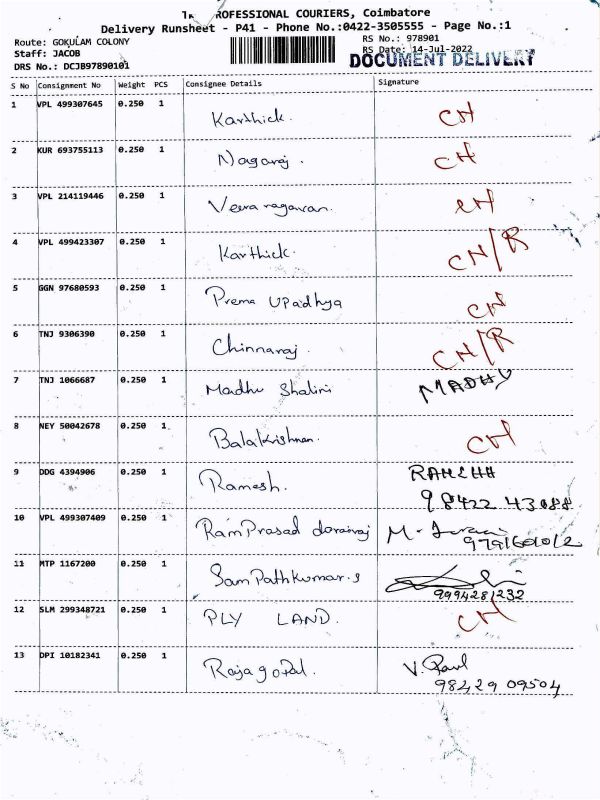 PROFESSIONAL COURIERS, Coimbatore
Delivery Runsheet - P41 - Phone No.:0422-3505555 - Page No.:1
Route: GOKULAM COLONY RS No.: 978901
Staff: JACOB RS Date: 14-Jul-2022
DRS No.: DCJB97890101 DOCUMENT DELIVERY
S No Consignment No Weight PCS Consignee Details Signature
1 VPL 499307645 0.250 1 Karthick. CH
2 KUR 693755113 0.250 1 Nagaraj. CH
3 VPL 214119446 0.250 1 Veeraragavan. CH
4 VPL 499423307 0.250 1 Karthick. CH/R
5 GGN 97680593 0.250 1 Prema UPadhya CH
6 TNJ 9306390 0.250 1 Chinnaraj. CH/R
7 TNJ 1066687 0.250 1 Madhu Shalini MADHU
8 NEY 50042678 0.250 1 Balakrishnan. CH
9 DDG 4394906 0.250 1 Ramesh. RAMESH
98422 43088
10 VPL 499307409 0.250 1 RamPrasad dorairaj
11 MTP 1167200 0.250 1 SamPathkumar.s
9994281232
12 SLM 299348721 0.250 1 PLY LAND. CH
13 DPI 10182341 0.250 1 Rajagopal.
98429 09504